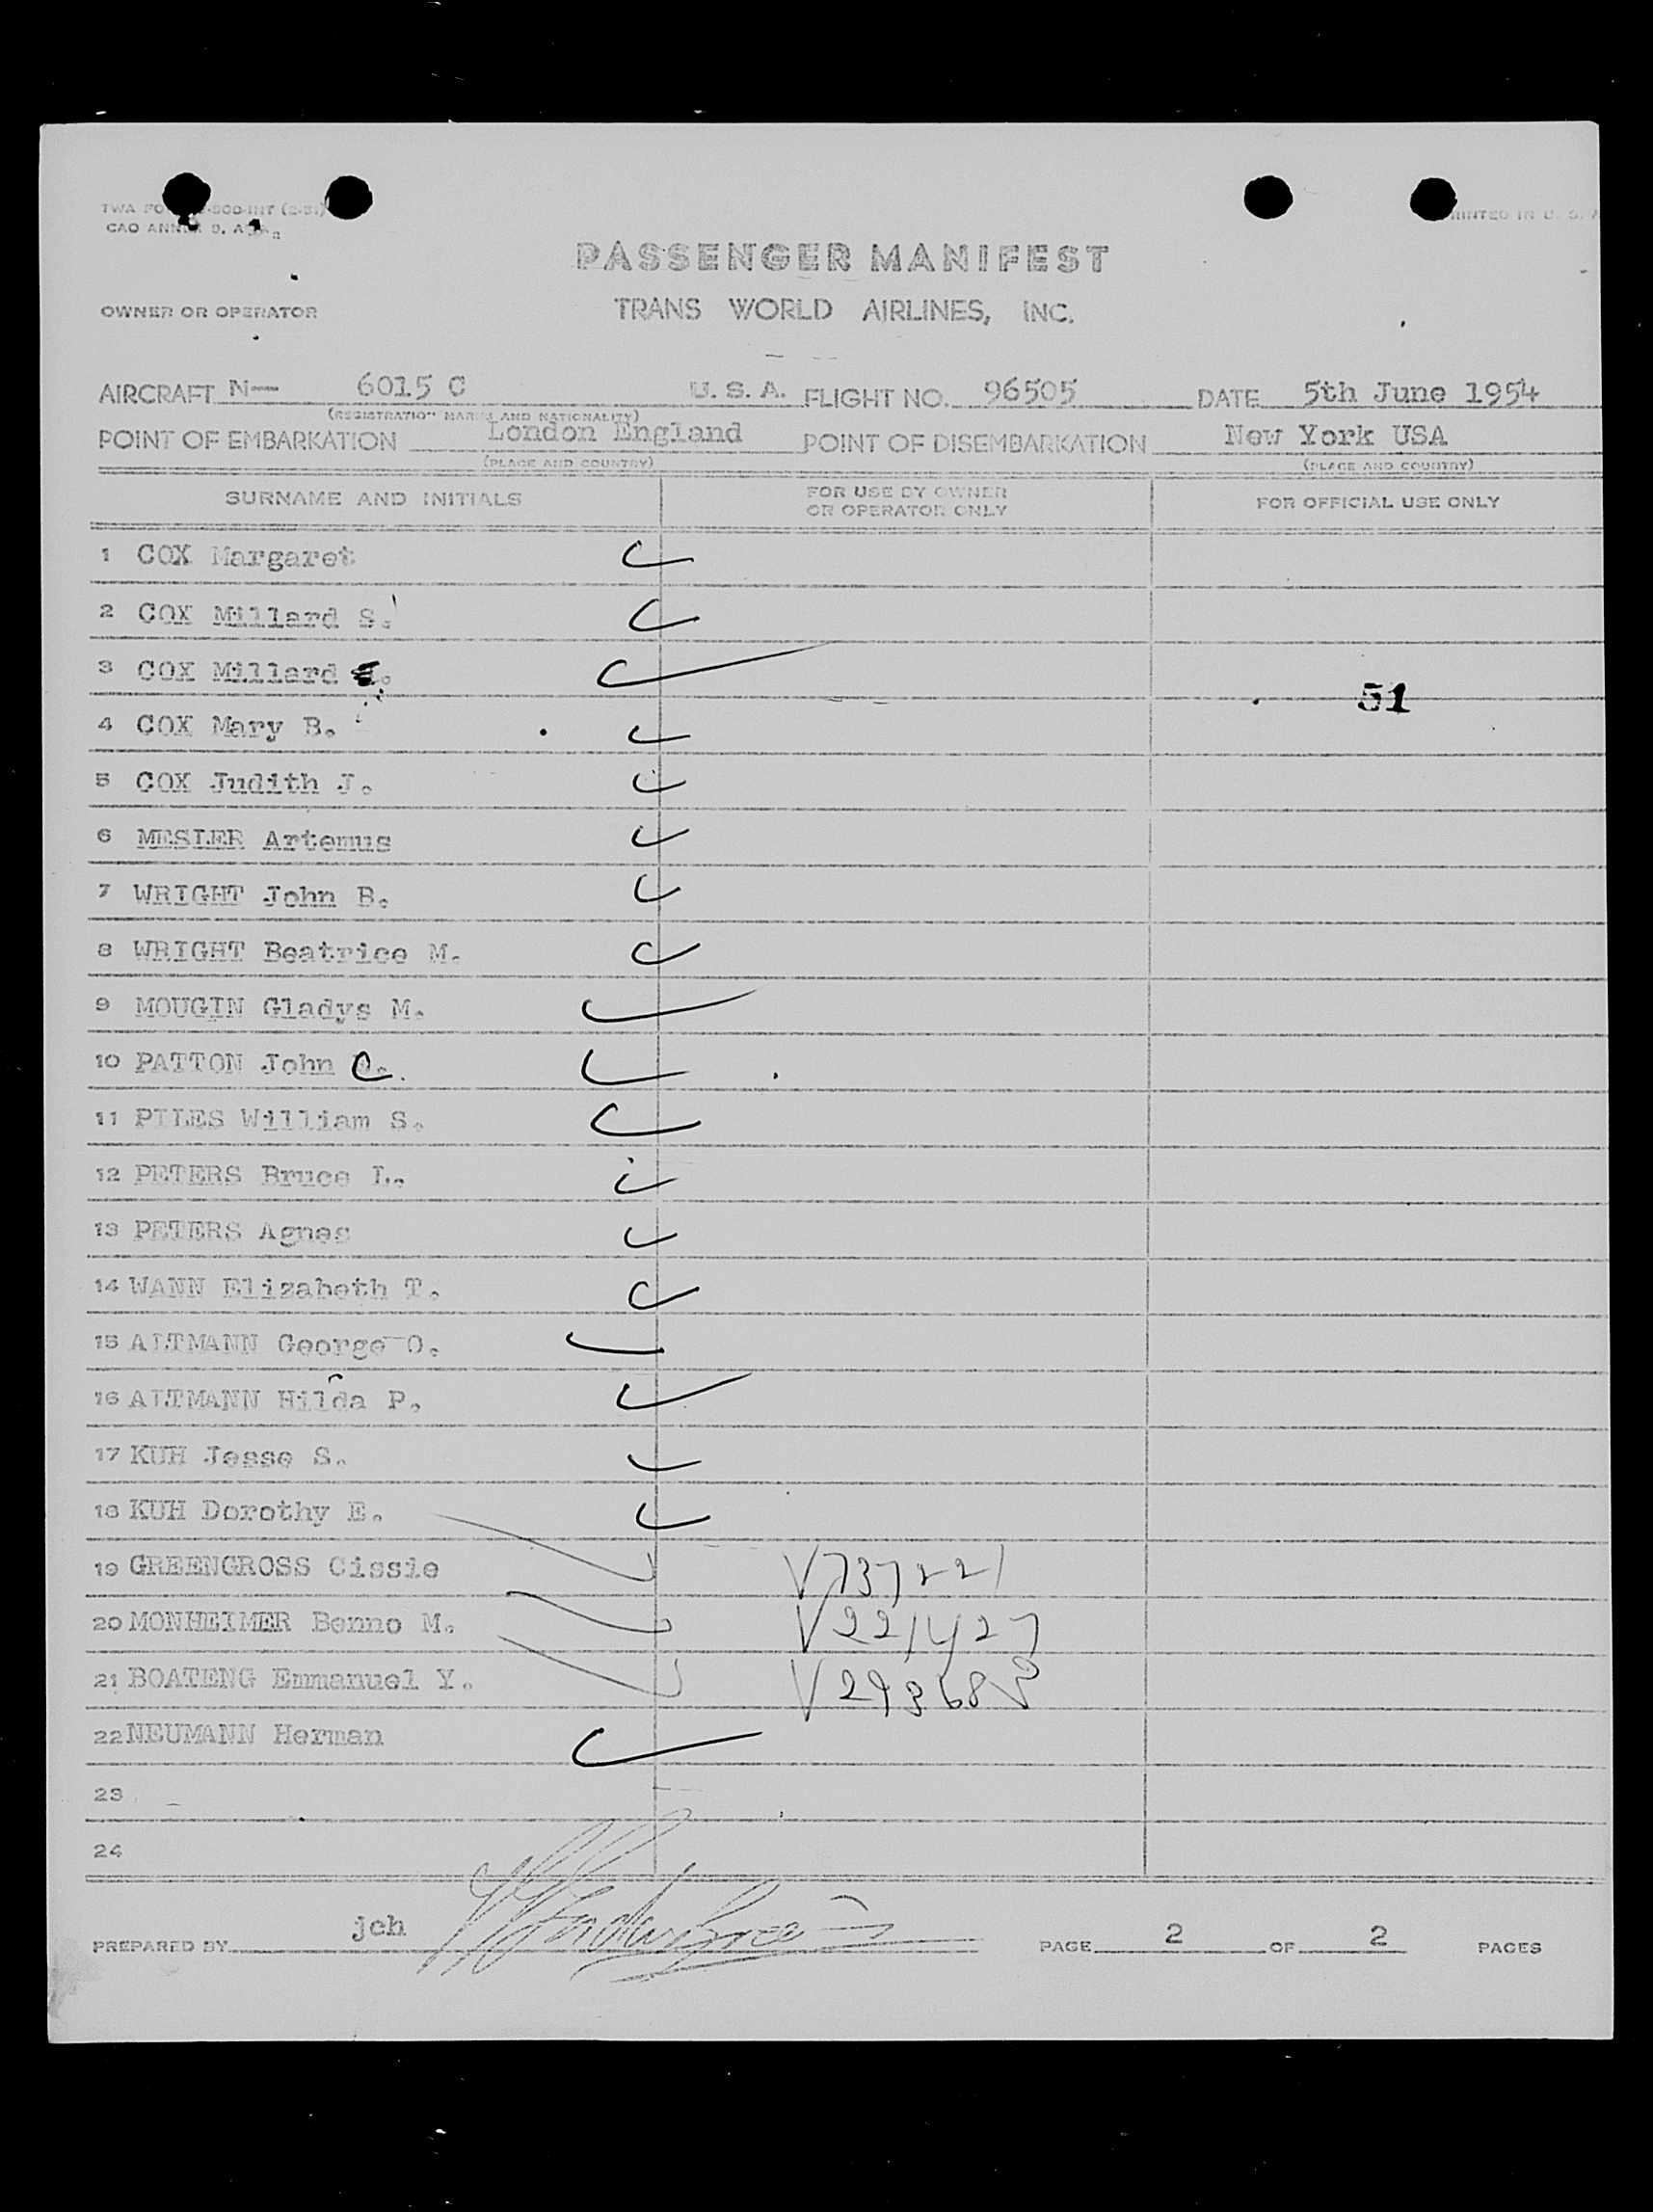 PRINTED IN U. S. A
PASSENGER MANIFEST
OWNER OR OPERATOR TRANS WORLD AIRLINES, INC.
AIRCRAFT N— 6015 C U. S. A. FLIGHT NO. 96505 DATE 5th June 1954
(REGISTRATION MARKS AND NATIONALITY)
POINT OF EMBARKATION London England POINT OF DISEMBARKATION New York USA
(PLACE AND COUNTRY) (PLACE AND COUNTRY)
SURNAME AND INITIALS FOR USE BY OWNER OR OPERATOR ONLY FOR OFFICIAL USE ONLY
1 COX Margaret
2 COX Millard S.
3 COX Millard
51
4 COX Mary B.
5 COX Judith J.
6 MESLER Artemus
7 WRIGHT John B.
8 WRIGHT Beatrice M.
9 MOUGIN Gladys M.
10 PATTON John C.
11 PILES William S.
12 PETERS Bruce L.
13 PETERS Agnes
14 WANN Elizabeth T.
15 ALTMANN George O.
16 ALTMANN Hilda P.
17 KUH Jesse S.
18 KUH Dorothy E.
19 GREENGROSS Cissie V737221
20 MONHEIMER Benno M. V221427
21 BOATENG Emmanuel Y.
22 NEUMANN Herman
23
24
PREPARED BY jch PAGE 2 OF 2 PAGES